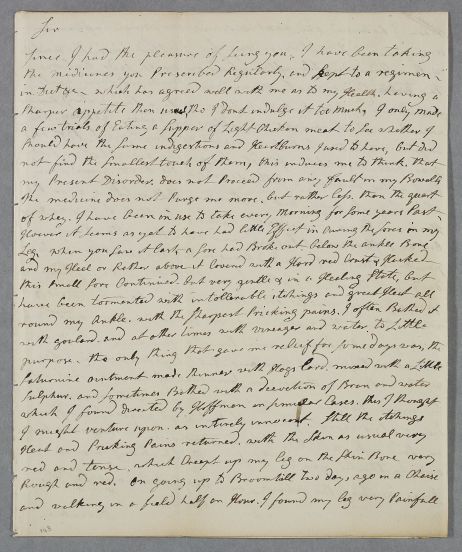 Sir
Since I had the pleasure of seing you, I have been taking
the medicines you Prescribed Regularly, and kept to a regimen
in Diet &c. which has agreed well with me as to my Health, having a
sharper appetite then usual tho I dont indulge it too much, I only made
a few trials of Eating a supper of Light Chicken meat to see whether I
should have the same indigestions and Heartburns I used to have, but did
not find the smallest touch of them, this induces me to think, that
my Present Disorder, does not Proceed from any fault in my Bowells
the medicine does not Purge me more, but rather less, than the quart
of whey, I have been in use to take every morning for some years Past.
However it seems as yet to have had little Effect in Curing the sores in my
Leg, when you saw it last, a sore had Broke out below the ankle Bone
and my Heel or Rather above it Coverd with a Hard red Crust &
this small sore Continued, but very gentle & in a Healing State, but
have been tormented with intollerable itchings and great Heat all
round my Ankle, with the sharpest Pricking pains, I often Bathed it
with goulard, and at other times with vinegar and water to Little
purpose. the only thing that gave me relief for some days was, the
Saturnine ointment made thinner with Hogs Lard, mixed with a Little
Sulphur, and sometimes Bathed with a decoction of Bran and water
which I found directed by Hoffman in similar Cases. this I thought
I might venture upon, as intirely innocent. Still the itchings
Heat and Pricking Pains returned, with the Skin as usual very
red and tense, which Creept up my leg on the Shin Bone very
Rough and red. On going up to Broomhill two days ago in a Chaise
and walking in a field half an Hour, I found my leg very Painfull
143